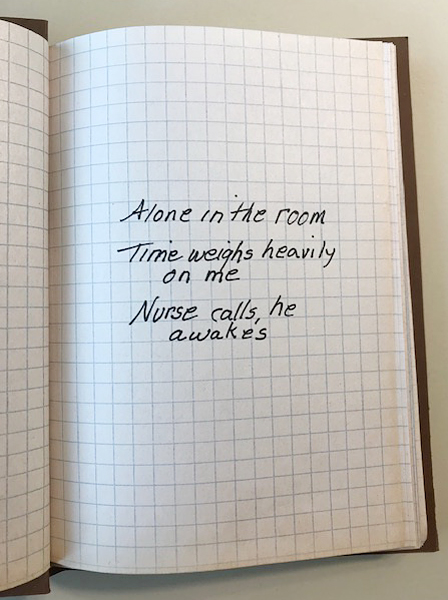 Alone in the room
Time weighs heavily
on me
Nurse calls, he
awakes